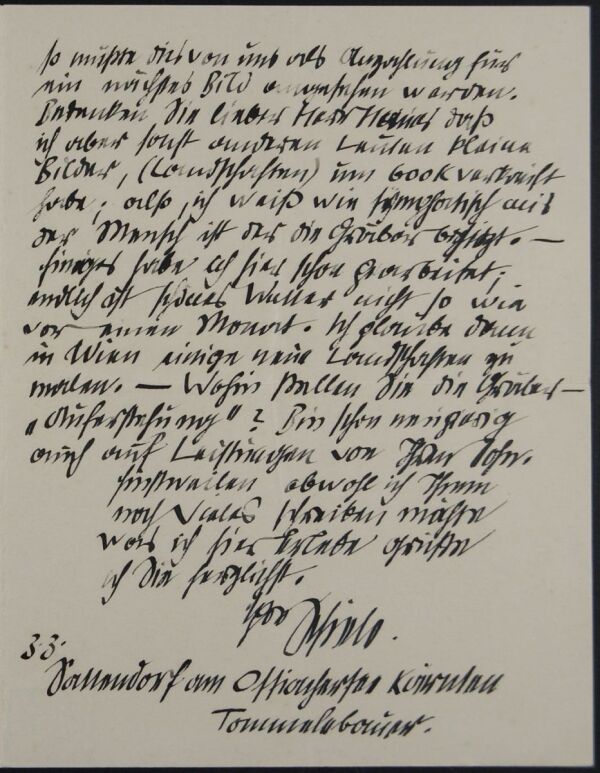 so müßte dies von uns als Anzahlung fürs
ein nächstes Bild angesehen werden.
Bedenken Sie lieber Herr Hauer daß
ich aber sonst anderen Leuten kleine
Bilder, (Landschaften) um 600K verkauft
habe; also ich weiß wie sympathisch mir
der Mensch ist der die Gräber besitzt. —
Einiges habe ich hier schon gearbeitet;
endlich ist schönes Wetter nicht so wie
vor einem Monat. Ich glaube dann
in Wien einige neue Landschaften zu
malen. — Wohin stellen Sie die Gräber —
„Auferstehung“? Bin schon neugierig
auch auf Leistungen von Ihrem Sohn.
Einstweilen obwohl ich Ihnen
noch Vieles schreiben möchte
was ich hier erlebe grüße
ich Sie herzlichst.
Ihr Schiele.
z. Z.
Sattendorf am Ossiachersee Kärnten
Tommelebauer.